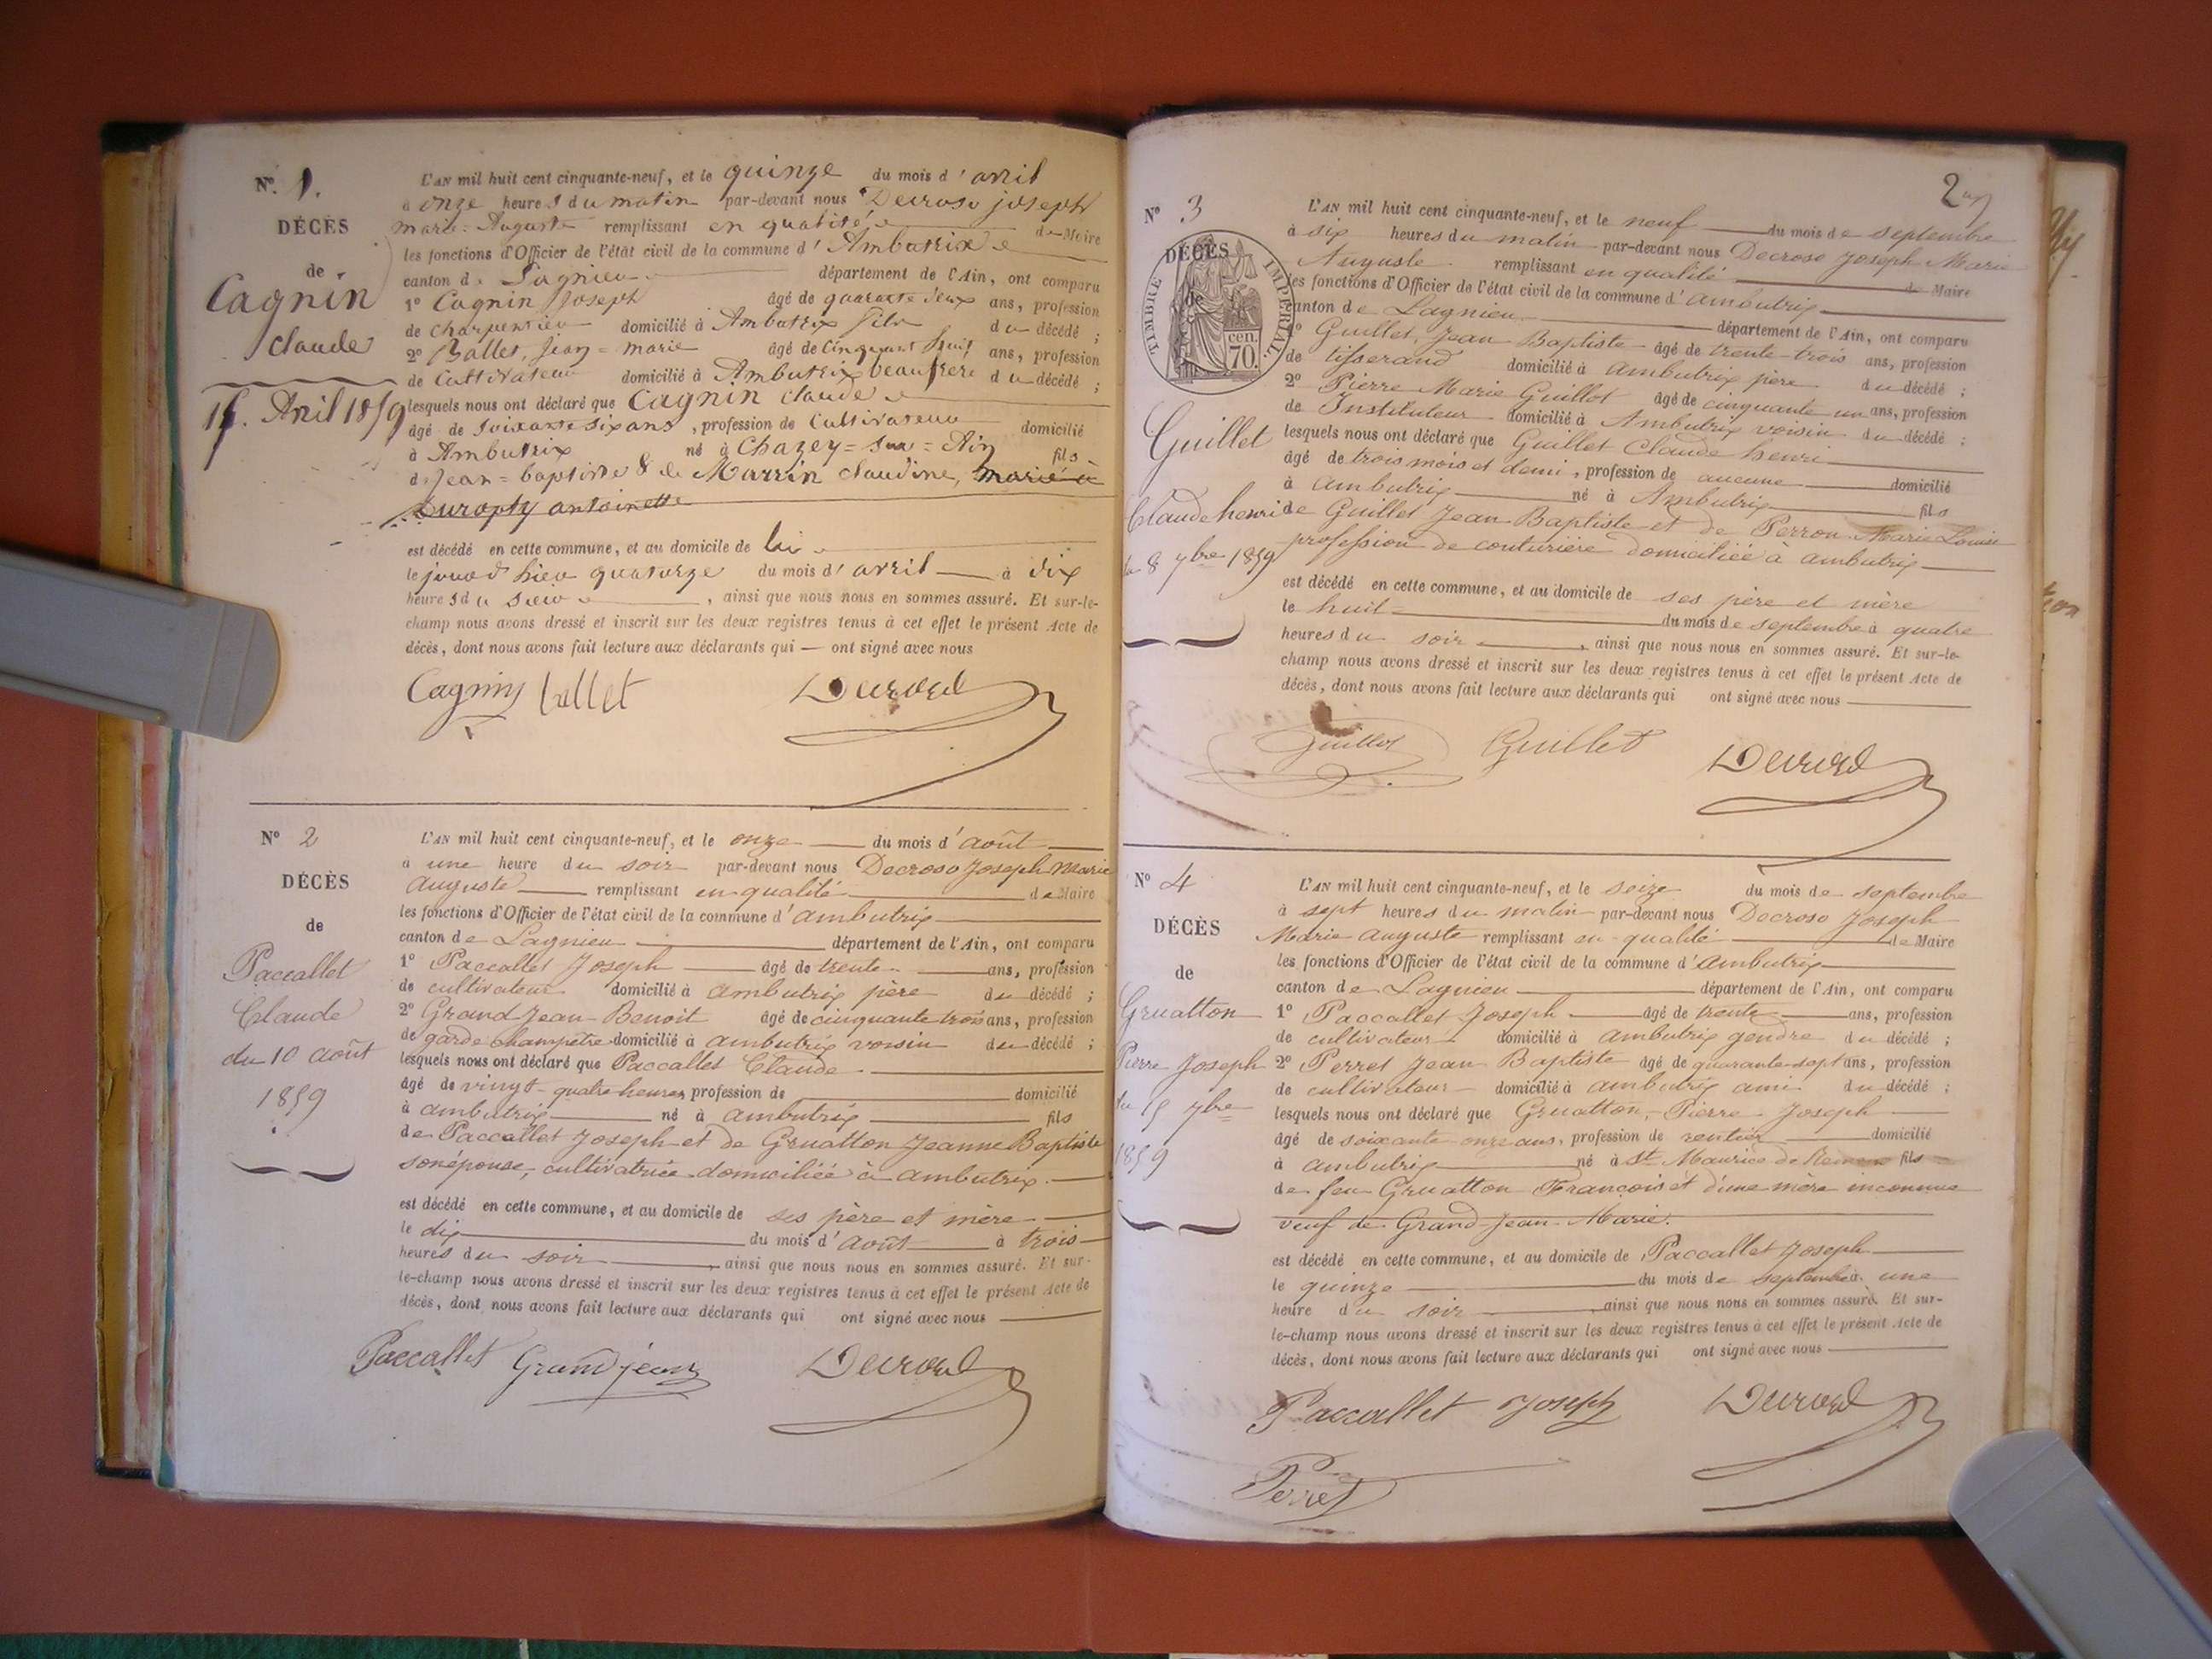 N.º 1.
DÉCÈS
de
Cagnin
claude
15. Avril 1859
L'AN mil huit cent cinquante-neuf, et le quinze du mois d'avril
à onze heures du matin par-devant nous Decroso joseph
marie-Auguste remplissant en qualité de Maire
les fonctions d'Officier de l'état civil de la commune d'Ambutrix
canton de Lagnieu département de l'Ain, ont comparu
1º Cagnin Joseph âgé de quarante deux ans, profession
de Charpentier domicilié à Ambutrix fils du décédé ;
2º Ballet, Jean-marie âgé de cinquante huit ans, profession
de Cultivateur domicilié à Ambutrix beaufrere du décédé ;
lesquels nous ont déclaré que Cagnin claude
âgé de soixante six ans, profession de Cultivateur domicilié
à Ambutrix né à Chazey-sur-Ain fils
de Jean-baptiste & de Marrin claudine, marié à
antoinette
est décédé en cette commune, et au domicile de lui
le jour d'hier quatorze du mois d'avril à dix
heures du soir, ainsi que nous nous en sommes assuré. Et sur-le-
champ nous avons dressé et inscrit sur les deux registres tenus à cet effet le présent Acte de
décès, dont nous avons fait lecture aux déclarants qui — ont signé avec nous
Cagnin ballet Decroso
Nº 2
DÉCÈS
de
Paccallet
Claude
du 10 août
1859
L'AN mil huit cent cinquante-neuf, et le onze du mois d'août
à une heure du soir par-devant nous Decroso Joseph Marie
Auguste remplissant en qualité de Maire
les fonctions d'Officier de l'état civil de la commune d'ambutrix
canton de Lagnieu département de l'Ain, ont comparu
1º Paccallet Joseph âgé de trente ans, profession
de cultivateur domicilié à ambutrix père du décédé ;
2º Grand Jean Benoit âgé de cinquante trois ans, profession
de garde champêtre domicilié à ambutrix voisin du décédé ;
lesquels nous ont déclaré que Paccallet Claude
âgé de vingt-quatre heures profession de domicilié
à ambutrix né à ambutrix fils
de Paccallet Joseph et de Gruatton Jeanne Baptiste
son épouse, cultivatrice domiciliée à ambutrix
est décédé en cette commune, et au domicile de ses père et mère
le dix du mois d'Août à trois
heures du soir, ainsi que nous nous en sommes assuré. Et sur-
le-champ nous avons dressé et inscrit sur les deux registres tenus à cet effet le présent Acte de
décès, dont nous avons fait lecture aux déclarants qui ont signé avec nous
Paccallet Grandjean Decroso
2
Nº 3
DÉCÈS
de
TIMBRE IMPÉRIAL.
70 cen.
Guillet
Claude henri
du 8 7bre 1859
L'AN mil huit cent cinquante-neuf, et le neuf du mois de septembre
à six heures du matin par-devant nous Decroso Joseph Marie
Auguste remplissant en qualité de Maire
les fonctions d'Officier de l'état civil de la commune d'ambutrix
canton de Lagnieu département de l'Ain, ont comparu
1º Guillet, Jean Baptiste âgé de trente-trois ans, profession
de tisserand domicilié à ambutrix père du décédé ;
2º Pierre Marie Guillot âgé de cinquante un ans, profession
de Instituteur domicilié à Ambutrix voisin du décédé ;
lesquels nous ont déclaré que Guillet Claude henri
âgé de trois mois et demi, profession de aucune domicilié
à ambutrix né à Ambutrix fils
de Guillet Jean Baptiste et de Perron Marie Louise
profession de couturière domiciliée à ambutrix
est décédé en cette commune, et au domicile de ses père et mère
le huit du mois de septembre à quatre
heures du soir, ainsi que nous nous en sommes assuré. Et sur-le-
champ nous avons dressé et inscrit sur les deux registres tenus à cet effet le présent Acte de
décès, dont nous avons fait lecture aux déclarants qui ont signé avec nous
Guillot Guillet Decroso
Nº 4
DÉCÈS
de
Gruatton
Pierre Joseph
du 15 7bre
1859
L'AN mil huit cent cinquante-neuf, et le seize du mois de septembre
à sept heures du matin par-devant nous Decroso Joseph
Marie auguste remplissant en qualité de Maire
les fonctions d'Officier de l'état civil de la commune d'Ambutrix
canton de Lagnieu département de l'Ain, ont comparu
1º Paccallet Joseph âgé de trente ans, profession
de cultivateur domicilié à ambutrix gendre du décédé ;
2º Perret Jean Baptiste âgé de quarante-sept ans, profession
de cultivateur domicilié à ambutrix ami du décédé ;
lesquels nous ont déclaré que Gruatton, Pierre Joseph
âgé de soixante onze ans, profession de rentier domicilié
à ambutrix né à St Maurice de Remens fils
de feu Gruatton François et d'une mère inconnue
veuf de Grand-Jean Marie.
est décédé en cette commune, et au domicile de Paccallet Joseph
le quinze du mois de septembre à une
heure du soir, ainsi que nous nous en sommes assuré. Et sur-
le-champ nous avons dressé et inscrit sur les deux registres tenus à cet effet le présent Acte de
décès, dont nous avons fait lecture aux déclarants qui ont signé avec nous
Paccallet Joseph Decroso
Perret